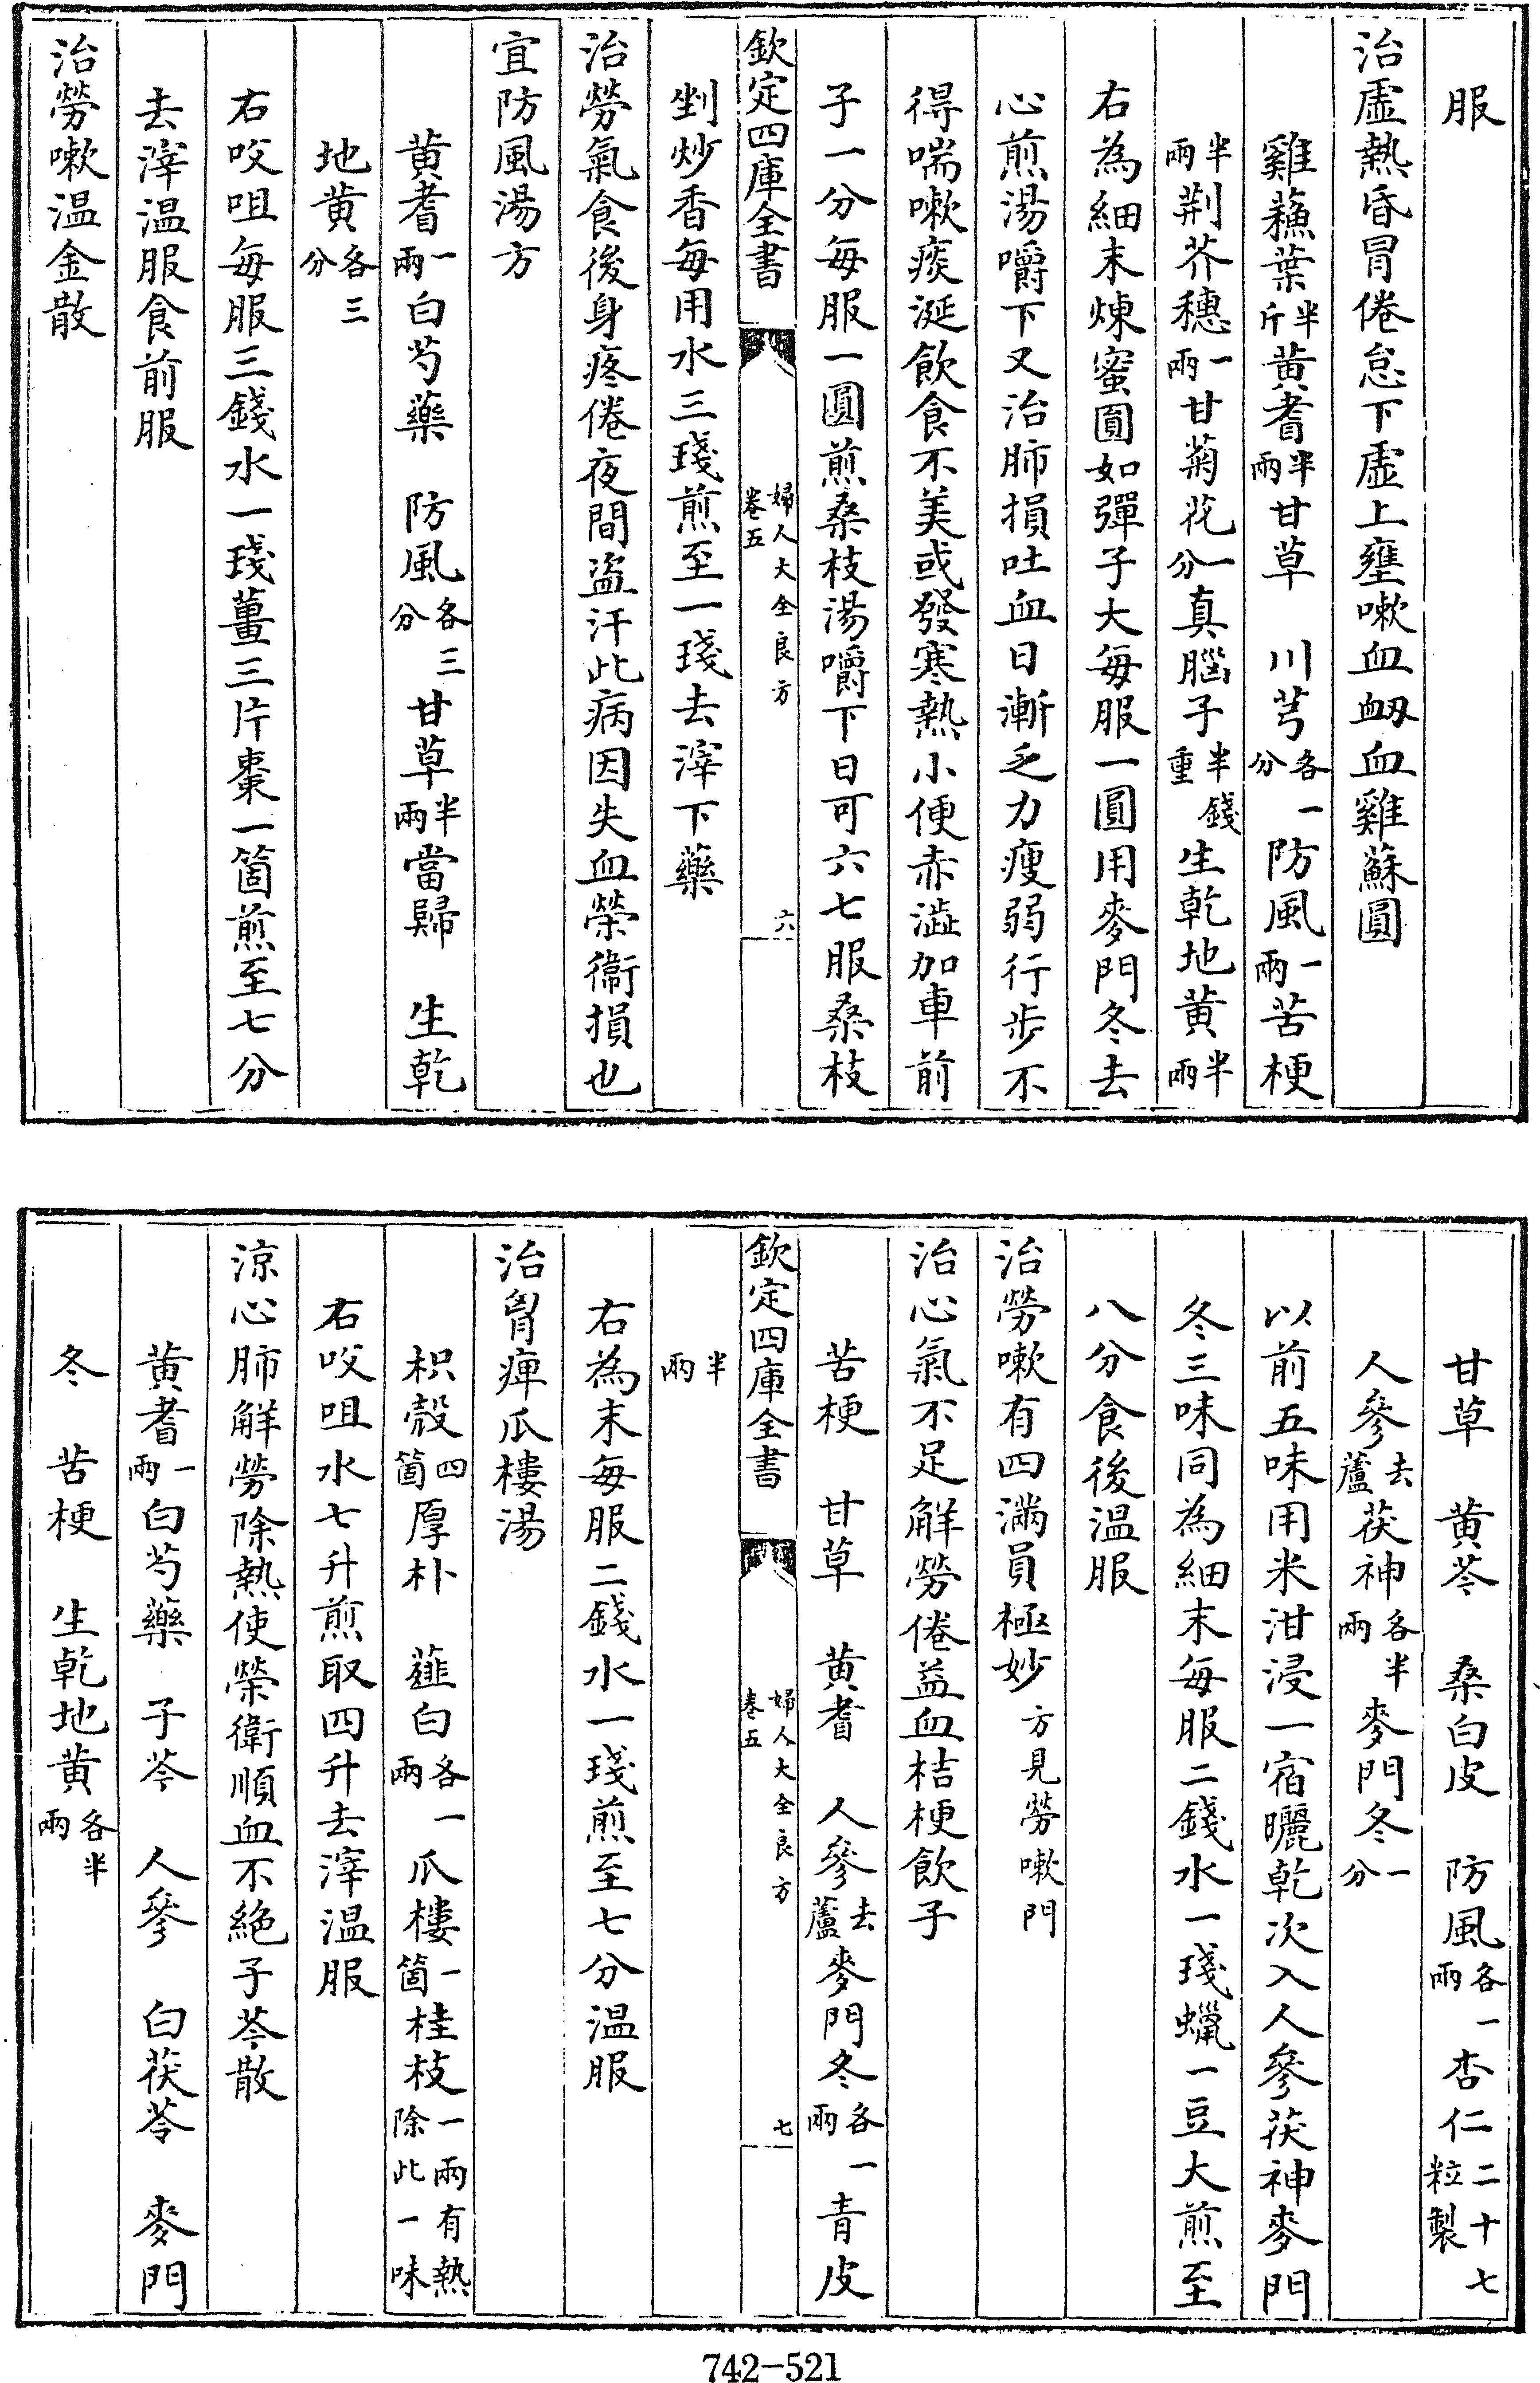 服
治虛熱昏冒倦怠下虛上壅嗽血衂血雞蘇圓
雞蘓葉半斤黄耆半兩甘草　川芎各一分防風一兩苦梗
半兩荆芥穗一兩甘菊花一分真腦子半錢重生乾地黄半兩
右為細末煉蜜圓如彈子大每服一圓用麥門冬去
心煎湯嚼下又治肺損吐血日漸乏力瘦弱行步不
得喘嗽痰涎飲食不美或發寒熱小便赤澁加車前
子一分每服一圓煎桑枝湯嚼下日可六七服桑枝
欽定四庫全書　婦人大全良方卷五　六
剉炒香每用水三琖煎至一琖去滓下藥
治勞氣食後身疼倦夜間盜汗此病因失血榮衞損也
宜防風湯方
黄耆一兩白芍藥　防風各三分甘草半兩當歸　生乾
地黄各三分
右㕮咀每服三錢水一琖薑三片棗一箇煎至七分
去滓温服食前服
治勞嗽温金散
甘草　黄芩　桑白皮　防風各一兩杏仁二十七粒製
人參去蘆茯神各半兩麥門冬一分
以前五味用米泔浸一宿曬乾次入人參茯神麥門
冬三味同為細末每服二錢水一琖蠟一豆大煎至
八分食後温服
治勞嗽有四滿員極妙方見勞嗽門
治心氣不足解勞倦益血桔梗飲子
苦梗　甘草　黄耆　人參去蘆麥門冬各一兩青皮
欽定四庫全書　婦人大全良方卷五　七
半兩
右為末每服二錢水一琖煎至七分温服
治胷痺瓜樓湯
枳殼四箇厚朴　薤白各一兩瓜樓一箇桂枝一兩有熱除此一味
右㕮咀水七升煎取四升去滓温服
涼心肺解勞除熱使榮衛順血不絶子芩散
黄耆一兩白芍藥　子芩　人參　白茯苓　麥門
冬　苦梗　生乾地黄各半兩
742-521